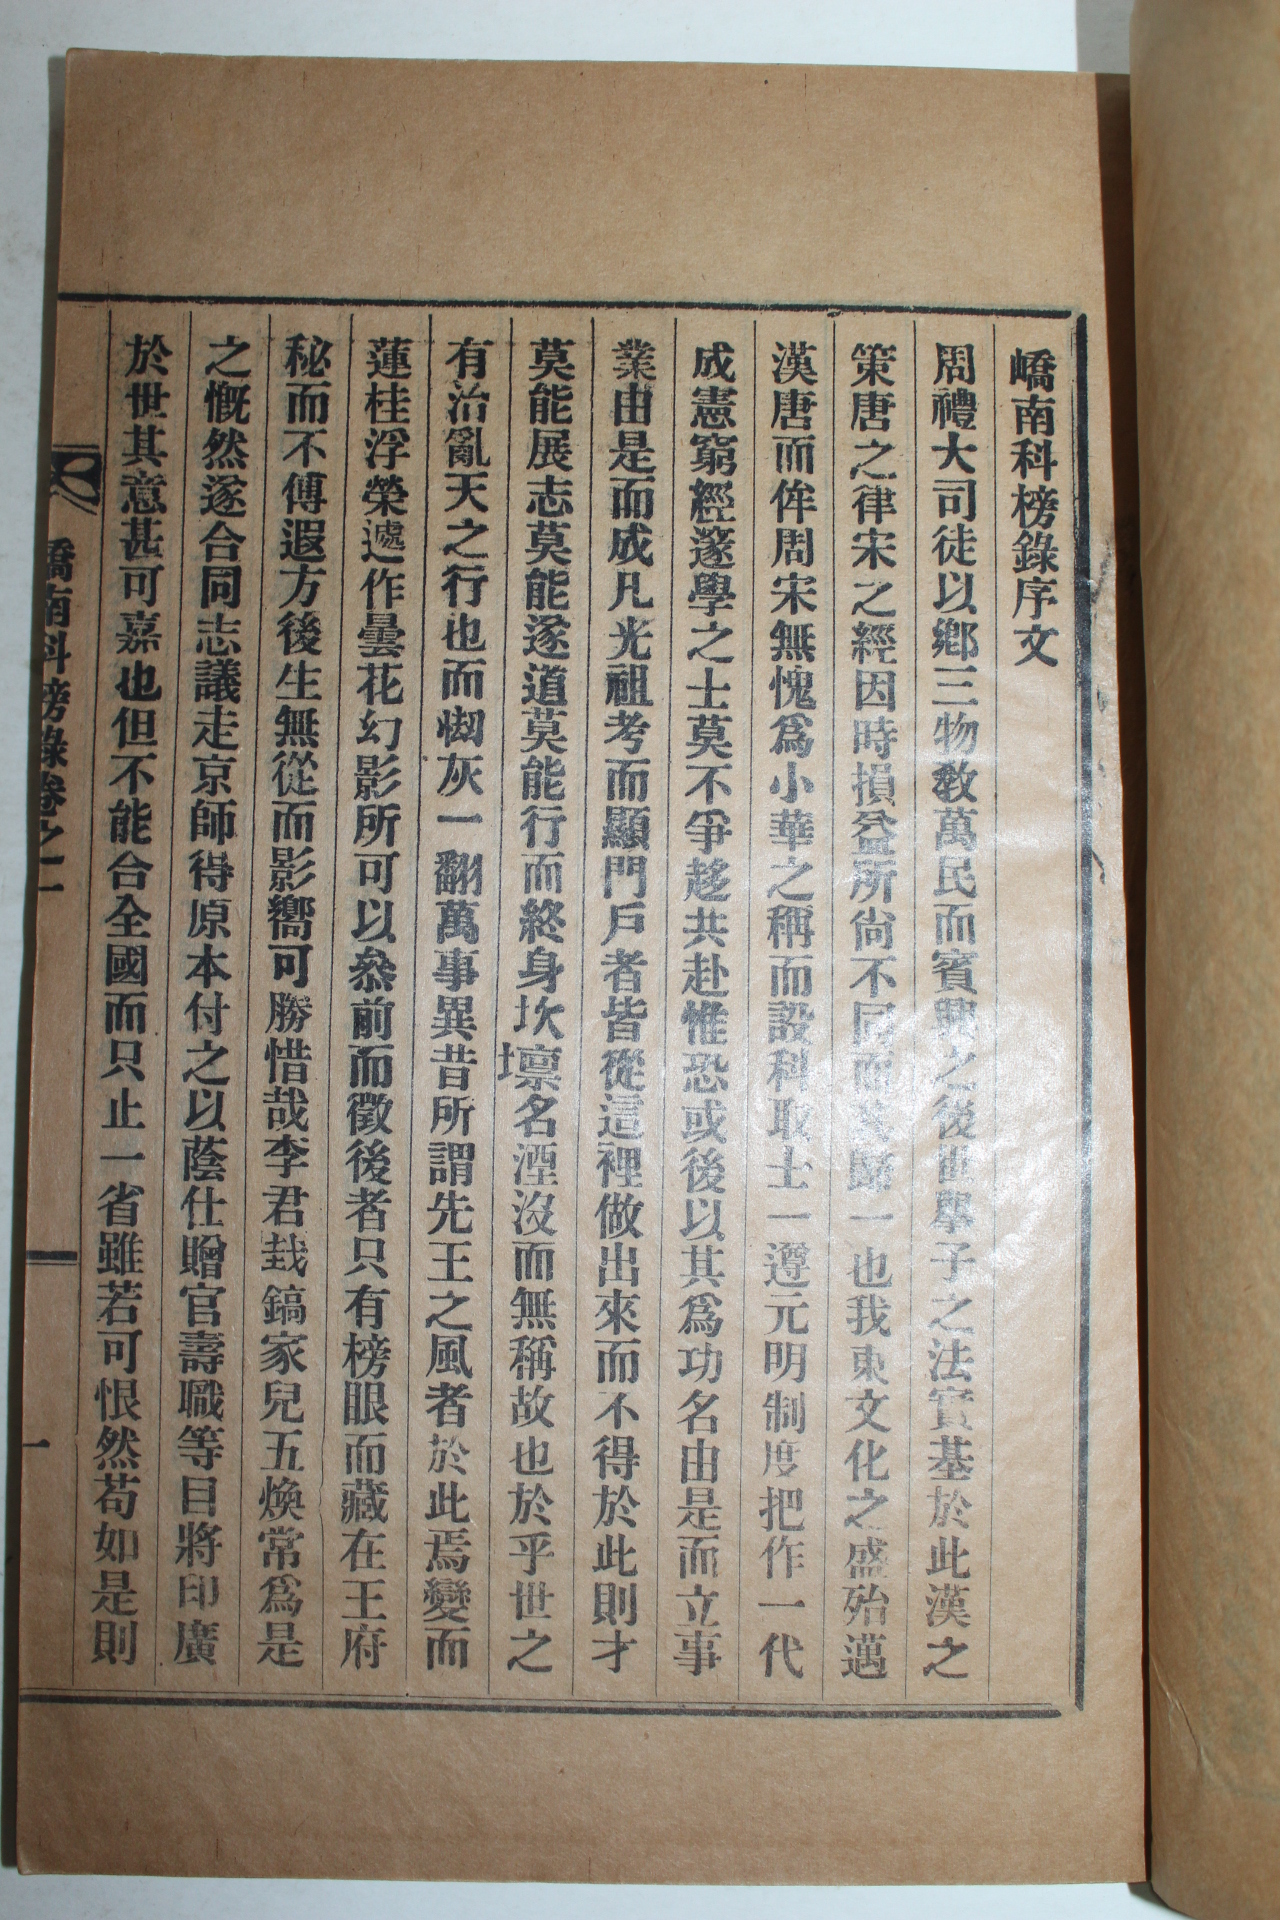 嶠南科榜錄序文
周禮大司徒以鄕三物敎萬民而賓興之後世擧子之法實基於此漢之
策唐之律宋之經因時損益所尙不同而其歸一也我東文化之盛殆邁
漢唐而侔周宋無愧爲小華之稱而設科取士一遵元明制度把作一代
成憲窮經邃學之士莫不爭趍共赴惟恐或後以其爲功名由是而立事
業由是而成凡光祖考而顯門戶者皆從這裡做出來而不得於此則才
莫能展志莫能遂道莫能行而終身坎壈名湮沒而無稱故也於乎世之
有治亂天之行也而刼灰一翻萬事異昔所謂先王之風者於此焉變而
蓮桂浮榮遽作曇花幻影所可以叅前而徵後者只有榜眼而藏在王府
秘而不傳遐方後生無從而影嚮可勝惜哉李君㦲鎬家兒五煥常爲是
之慨然遂合同志議走京師得原本付之以蔭仕贈官壽職等目將印廣
於世其意甚可嘉也但不能合全國而只止一省雖若可恨然苟如是則
嶠南科榜錄卷之一
一